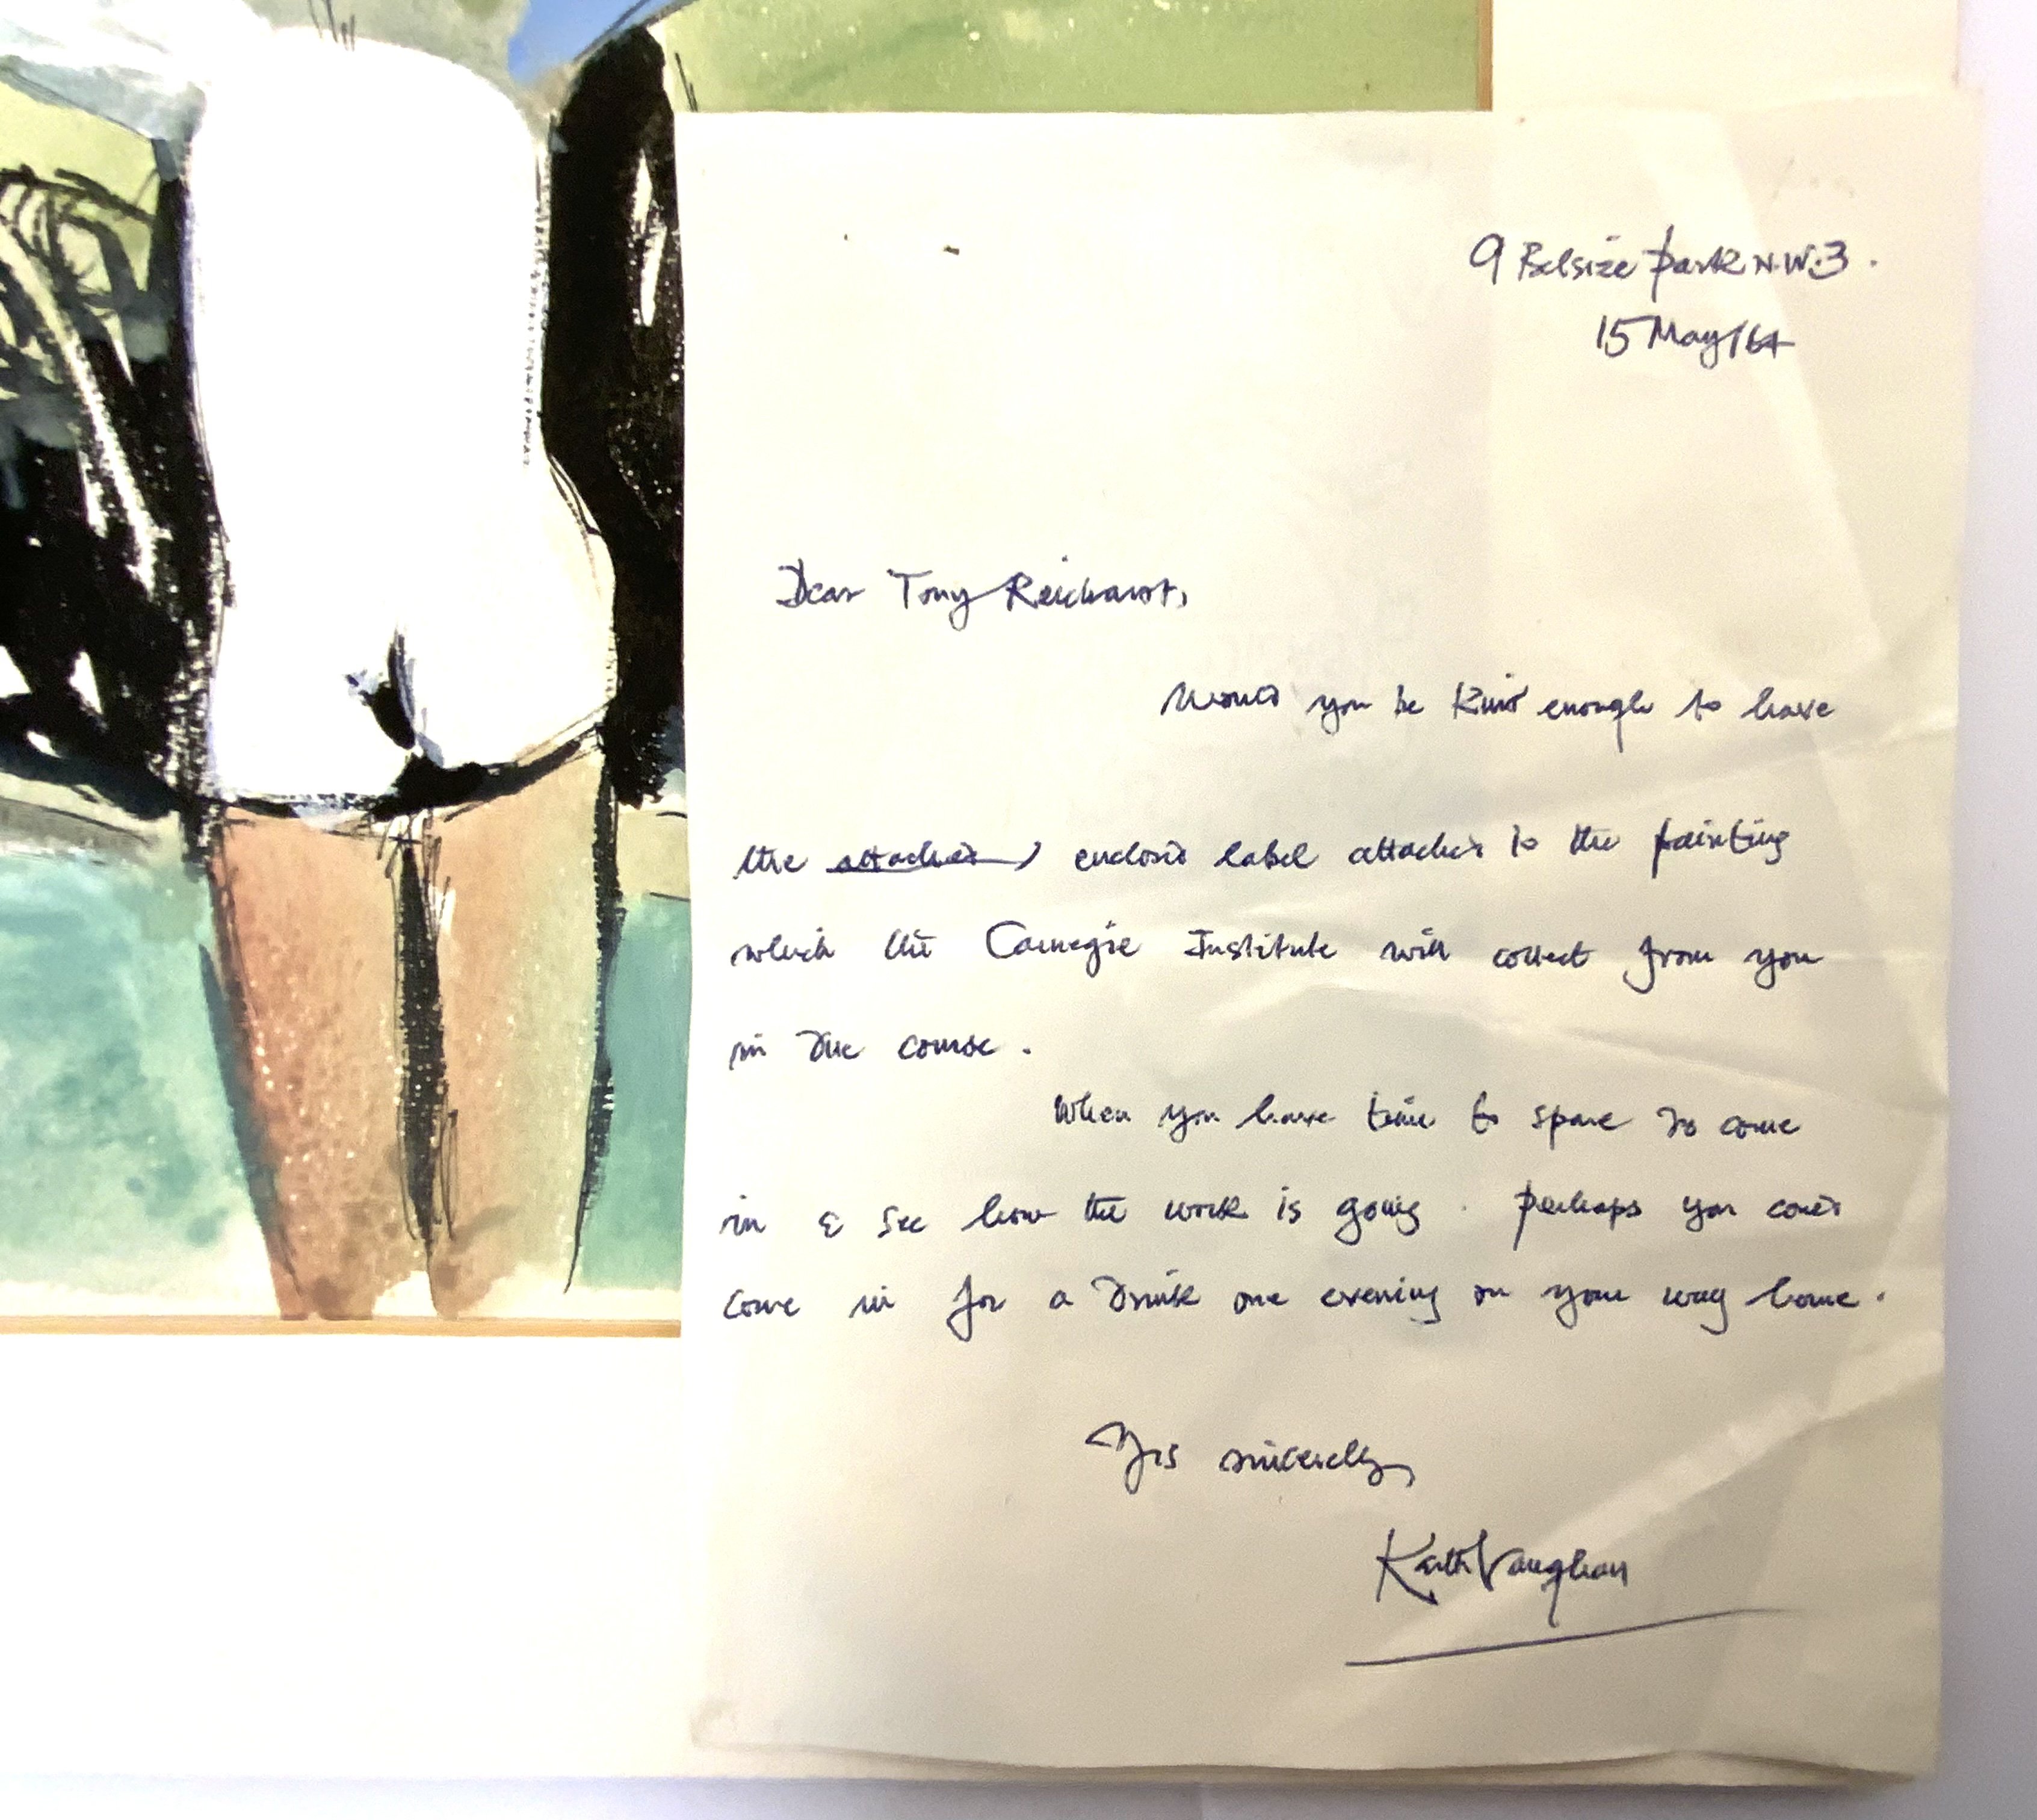 9 Belsize Park N.W.3.
15 May/64
Dear Tony Reichardt,
Would you be kind enough to have
the attached, enclosed label attached to the painting
which the Carnegie Institute will collect from you
in due course.
When you have time to spare do come
in & see how the work is going. Perhaps you could
come in for a drink one evening on your way home.
Yrs sincerely,
Keith Vaughan